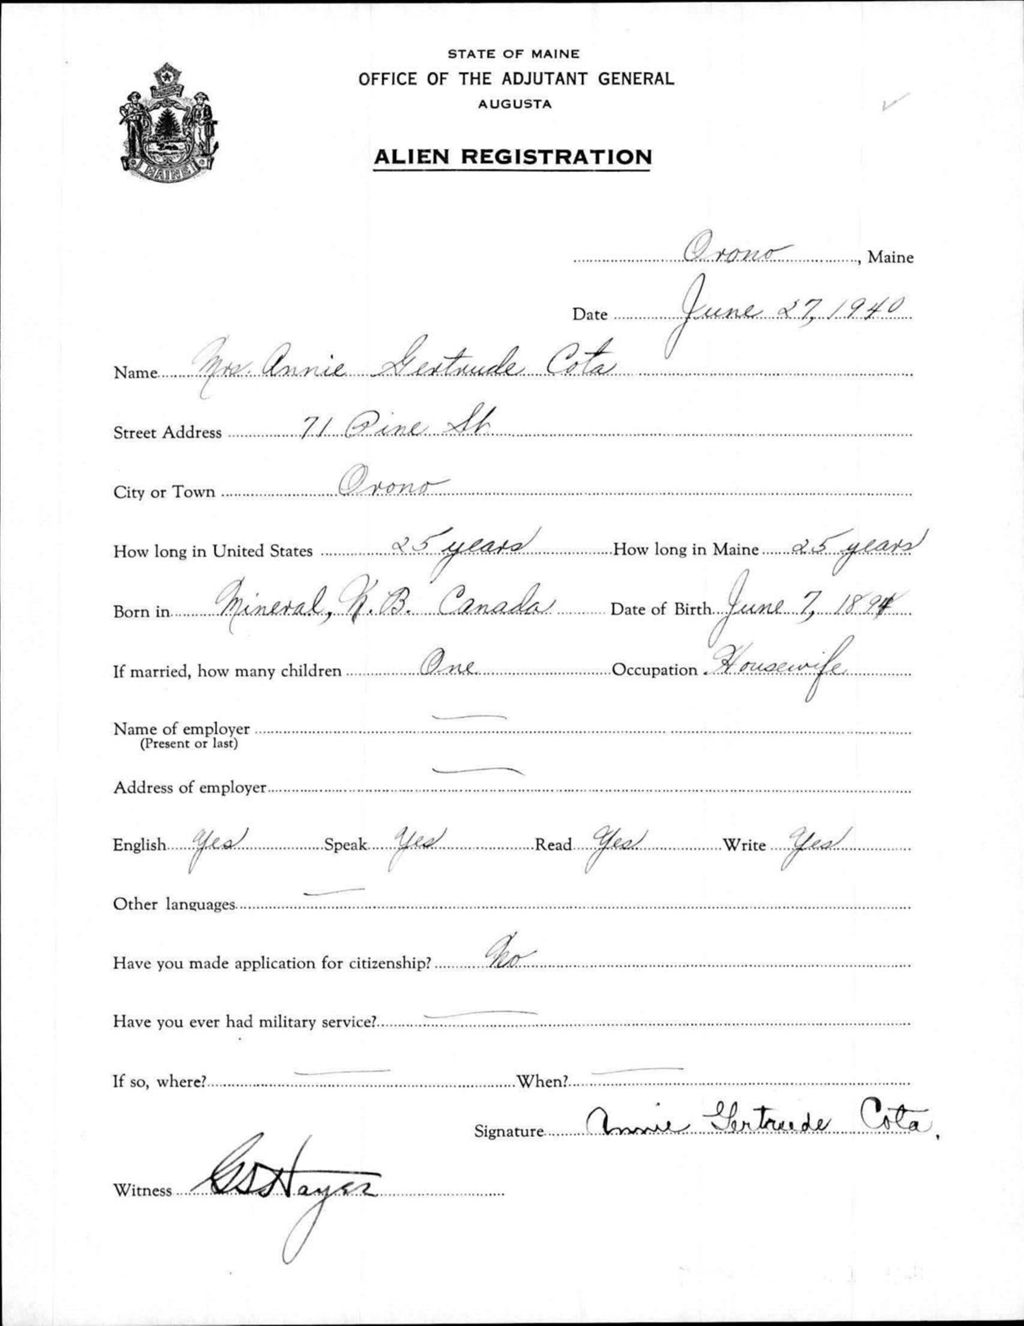 STATE OF MAINE
OFFICE OF THE ADJUTANT GENERAL
AUGUSTA
ALIEN REGISTRATION
MAINE
Orono, Maine
Date June 27, 1940
Name Mrs. Annie Gertrude Cota
Street Address 71 Pine St.
City or Town Orono
How long in United States 25 years How long in Maine 25 years
Born in Mineral, N.B. Canada Date of Birth June 7, 1894
If married, how many children One Occupation Housewife
Name of employer —
(Present or last)
Address of employer —
English Yes Speak Yes Read Yes Write Yes
Other languages —
Have you made application for citizenship? No
Have you ever had military service? —
If so, where? — When? —
Signature Annie Gertrude Cota.
Witness G S Hayes